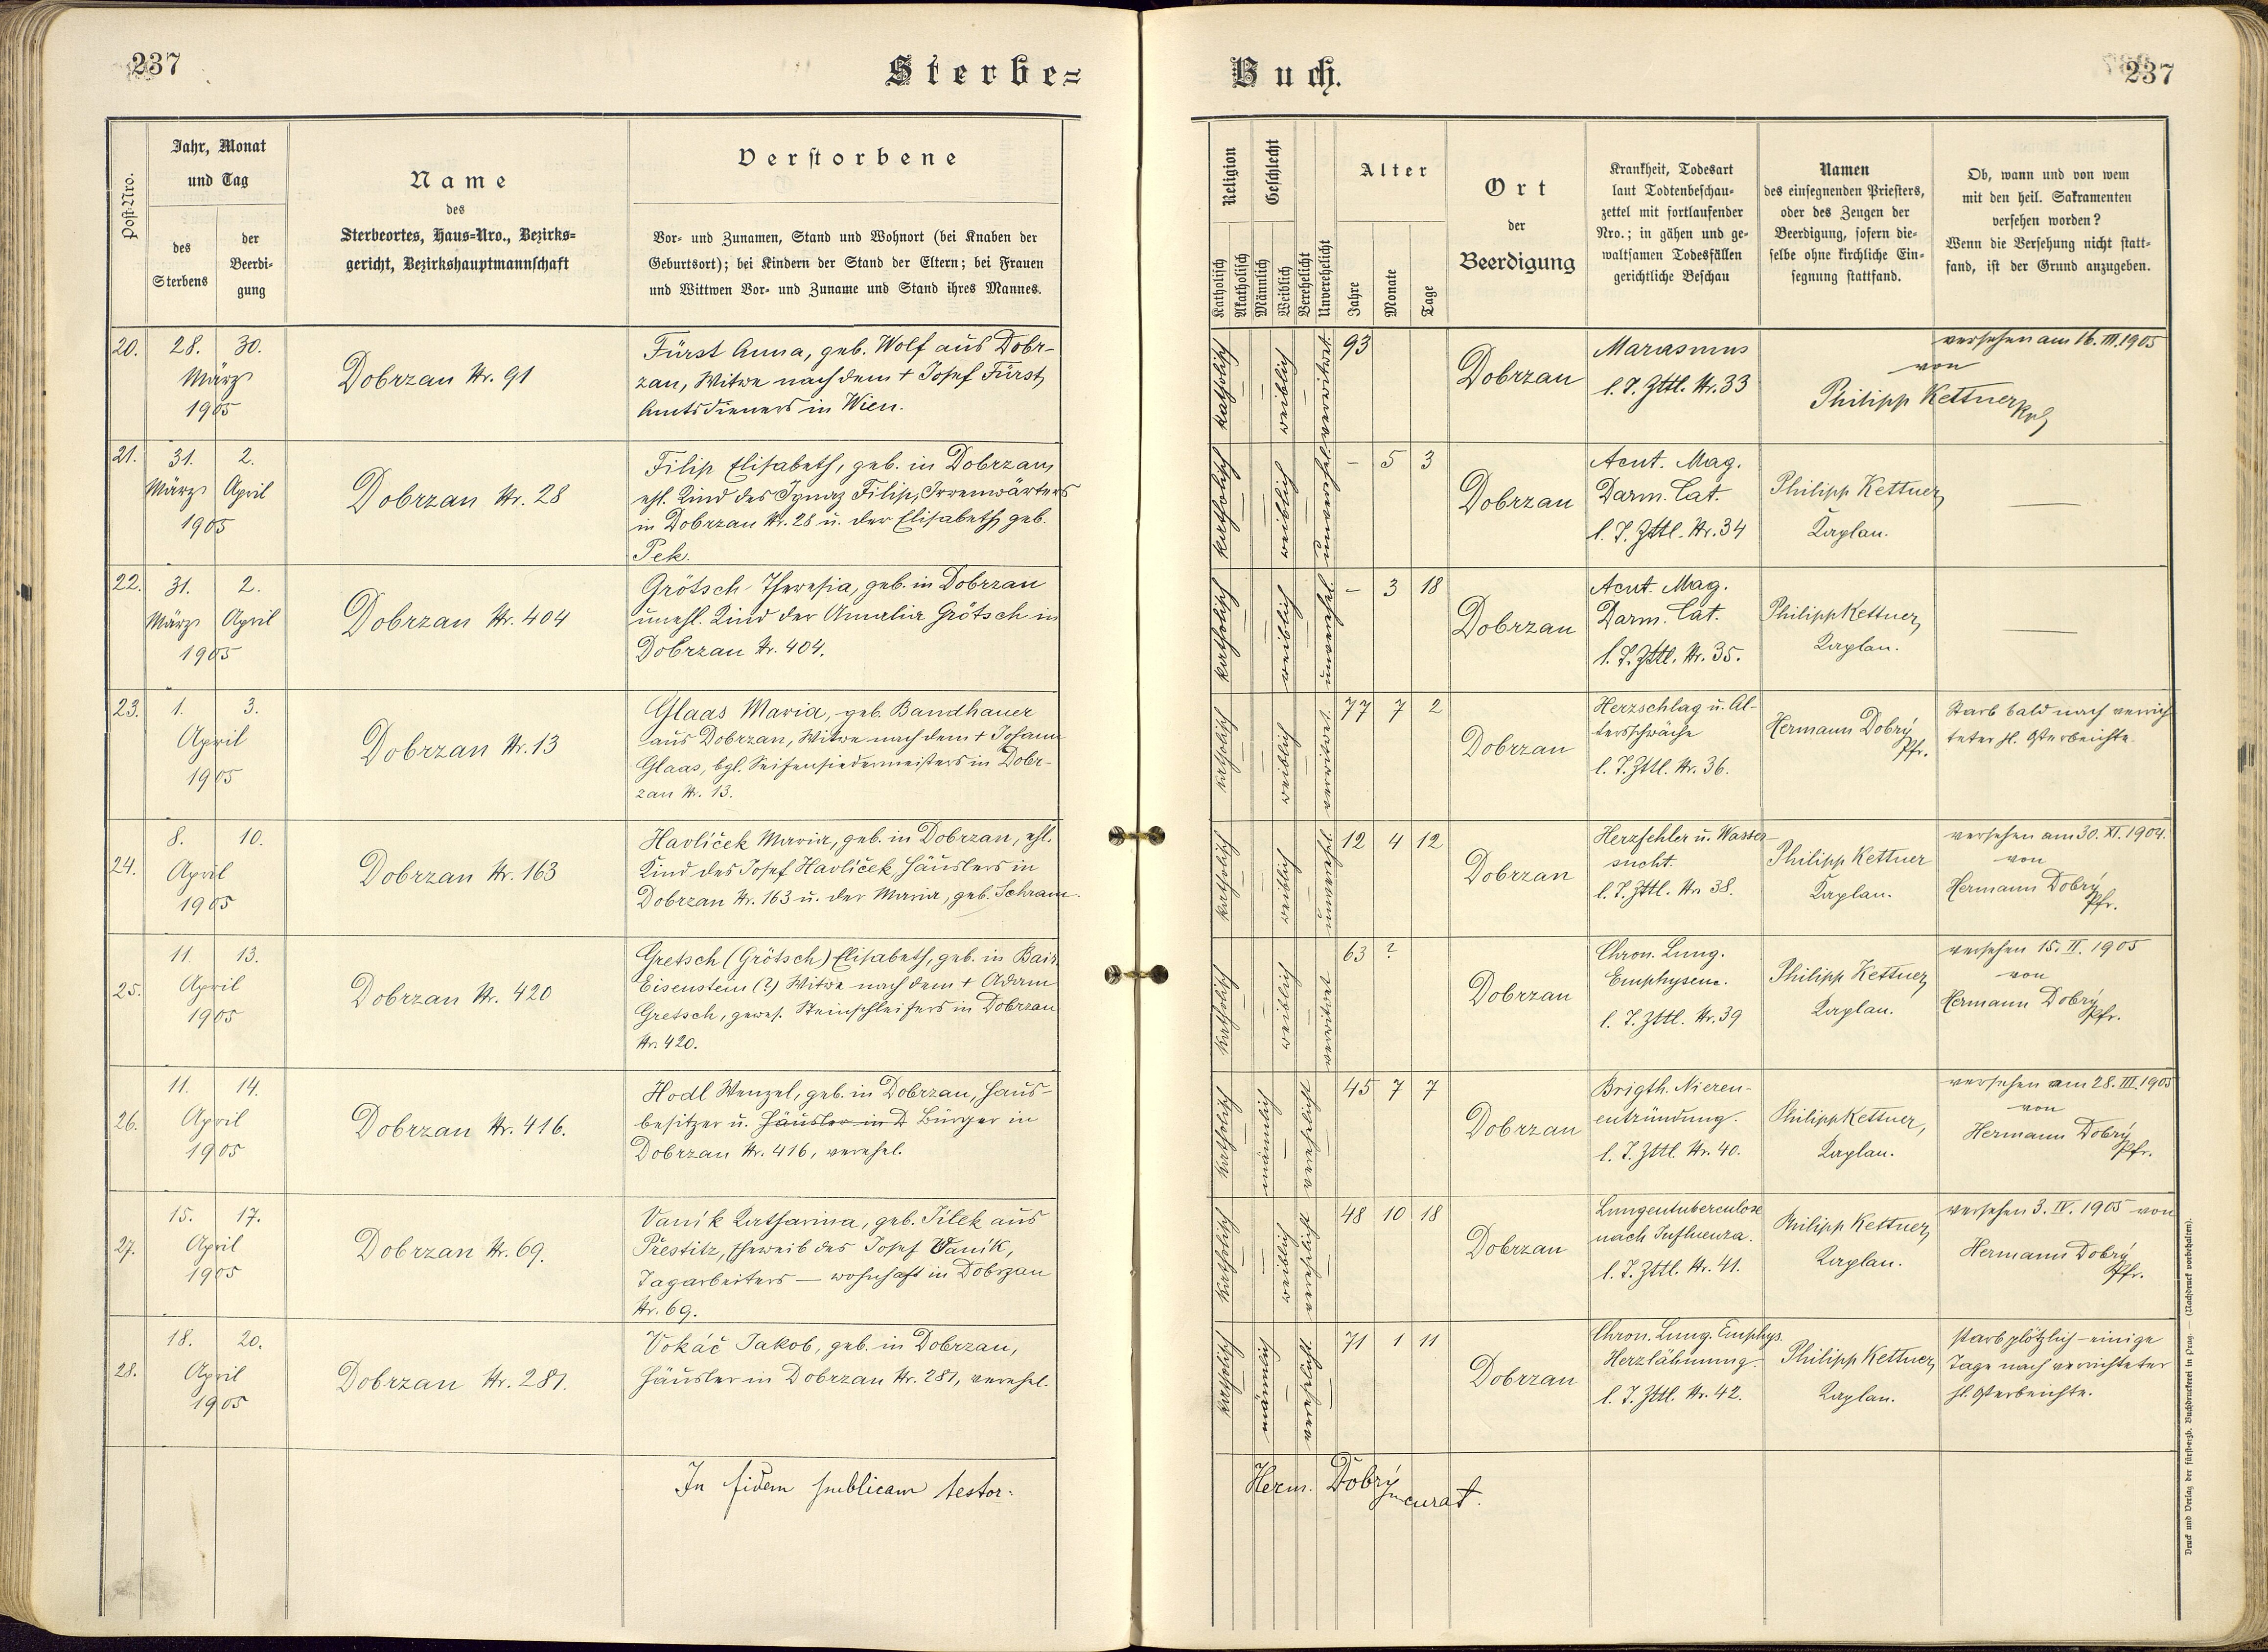 237
Sterbe=
Buch.
237
Post-Nro.
Jahr, Monat
und Tag
des
Sterbens
der
Beerdi-
gung
Name
des
Sterbeortes, Haus-Nro., Bezirks-
gericht, Bezirkshauptmannschaft
Verstorbene
Vor- und Zunamen, Stand und Wohnort (bei Knaben der
Geburtsort); bei Kindern der Stand der Eltern; bei Frauen
und Wittwen Vor- und Zuname und Stand ihres Mannes.
Religion
Katholisch
Akatholisch
Geschlecht
Männlich
Weiblich
Verehelicht
Unverehelicht
Alter
Jahre
Monate
Tage
Ort
der
Beerdigung
Krankheit, Todesart
laut Todtenbeschau-
zettel mit fortlaufender
Nro.; in gähen und ge-
waltsamen Todesfällen
gerichtliche Beschau
Namen
des einsegnenden Priesters,
oder des Zeugen der
Beerdigung, sofern die-
selbe ohne kirchliche Ein-
segnung stattfand.
Ob, wann und von wem
mit den heil. Sakramenten
versehen worden?
Wenn die Versehung nicht statt-
fand, ist der Grund anzugeben.
20.
28. 30.
März
1905
Dobrzan Nr. 91
Fürst Anna, geb. Wolf aus Dobr-
zan, Witwe nach dem + Josef Fürst,
Amtsdieners in Wien.
katholisch
weiblich
verwitwet
93
Dobrzan
Marasmus
l. T. Zttl. Nr. 33
versehen am 16. III. 1905
von
Philipp Kettner Kpl
21.
31. 2.
März April
1905
Dobrzan Nr. 28
Filip Elisabeth, geb. in Dobrzan,
ehl. Kind des Ignaz Filip, Irrenwärters
in Dobrzan Nr. 28 u. der Elisabeth, geb.
Pek.
katholisch
weiblich
unverehel.
– 5 3
Dobrzan
Acut. Mag.
Darm. Cat.
l. T. Zttl. Nr. 34
Philipp Kettner,
Kaplan.
—
22.
31. 2.
März April
1905
Dobrzan Nr. 404
Grötsch Theresia, geb. in Dobrzan
unehl. Kind der Amalia Grötsch in
Dobrzan Nr. 404.
katholisch
weiblich
unverehel.
– 3 18
Dobrzan
Acut. Mag.
Darm. Cat.
l. T. Zttl. Nr. 35.
Philipp Kettner,
Kaplan.
—
23.
1. 3.
April
1905
Dobrzan Nr. 13
Glaas Maria, geb. Bandhauer
aus Dobrzan, Witwe nach dem + Johann
Glaas, bgl. Seifensiedermeisters in Dobr-
zan Nr. 13.
katholisch
weiblich
verwitwet
77 7 2
Dobrzan
Herzschlag u. Al-
tersschwäche
l. T. Zttl. Nr. 36.
Hermann Dobrý
Pfr.
Starb bald nach verrich-
teter hl. Osterbeichte.
24.
8. 10.
April
1905
Dobrzan Nr. 163
Havlíček Maria, geb. in Dobrzan, ehl.
Kind des Josef Havlíček, Häuslers in
Dobrzan Nr. 163 u. der Maria, geb. Schram.
katholisch
weiblich
unverehel.
12 4 12
Dobrzan
Herzfehler u. Wasser-
sucht.
l. T. Zttl. Nr. 38.
Philipp Kettner
Kaplan.
versehen am 30. XI. 1904.
von
Hermann Dobrý
Pfr.
25.
11. 13.
April
1905
Dobrzan Nr. 420
Gretsch (Grötsch) Elisabeth, geb. in Bair.
Eisenstein (?) Witwe nach dem + Adam
Gretsch, gewes. Steinschleifers in Dobrzan
Nr. 420.
katholisch
weiblich
verwitwet
63 ?
Dobrzan
Chron. Lung.
Emphysem.
l. T. Zttl. Nr. 39
Philipp Kettner,
Kaplan.
versehen 15. II. 1905
von
Hermann Dobrý
Pfr.
26.
11. 14.
April
1905
Dobrzan Nr. 416.
Hodl Wenzel, geb. in Dobrzan, Haus-
besitzer u. Häusler in D Bürger in
Dobrzan Nr. 416, verehel.
katholisch
männlich
verehelicht
45 7 7
Dobrzan
Brigth. Nieren-
entzündung.
l. T. Zttl. Nr. 40.
Philipp Kettner,
Kaplan.
versehen am 28. III. 1905
von
Hermann Dobrý
Pfr.
27.
15. 17.
April
1905
Dobrzan Nr. 69.
Vaník Katharina, geb. Jílek aus
Přestitz, Eheweib des Josef Vaník,
Tagarbeiters — wohnhaft in Dobrzan
Nr. 69.
katholisch
weiblich
verehelicht
48 10 18
Dobrzan
Lungentuberculose
nach Influenza.
l. T. Zttl. Nr. 41.
Philipp Kettner,
Kaplan.
versehen 3. IV. 1905 von
Hermann Dobrý
Pfr.
28.
18. 20.
April
1905
Dobrzan Nr. 281.
Vokáč Jakob, geb. in Dobrzan,
Häusler in Dobrzan Nr. 281, verehel.
katholisch
männlich
verehelicht.
71 1 11
Dobrzan
Chron. Lung. Emphys.
Herzlähmung.
l. T. Zttl. Nr. 42.
Philipp Kettner,
Kaplan.
starb plötzlich – einige
Tage nach verrichteter
hl. Osterbeichte.
In fidem publicam testor.
Herm. Dobrý
Incurat.
Druck und Verlag der fürsterzb. Buchdruckerei in Prag. — (Nachdruck vorbehalten).